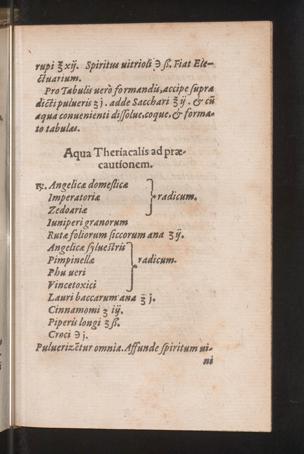 rupi ʒ xij. Spiritus uitrioli ℈ ß. Fiat Ele-
ctuarium.
Pro Tabulis uerò formandis, accipe suprà
dicti pulueris ʒ j. adde Sacchari ℥ ij. & cū
aqua conuenienti dissolue, coque, & forma-
to tabulas.
Aqua Theriacalis ad præ-
cautionem.
℞. Angelicæ domesticæ
Imperatoriæ } radicum.
Zedoariæ
Iuniperi granorum
Rutæ foliorum siccorum ana ʒ ij.
Angelicæ syluestris
Pimpinellæ } radicum.
Phu ueri
Vincetoxici
Lauri baccarum ana ℥ j.
Cinnamomi ʒ iij.
Piperis longi ʒ ß.
Croci ℈ j.
Puluerizētur omnia. Affunde spiritum ui-
ni